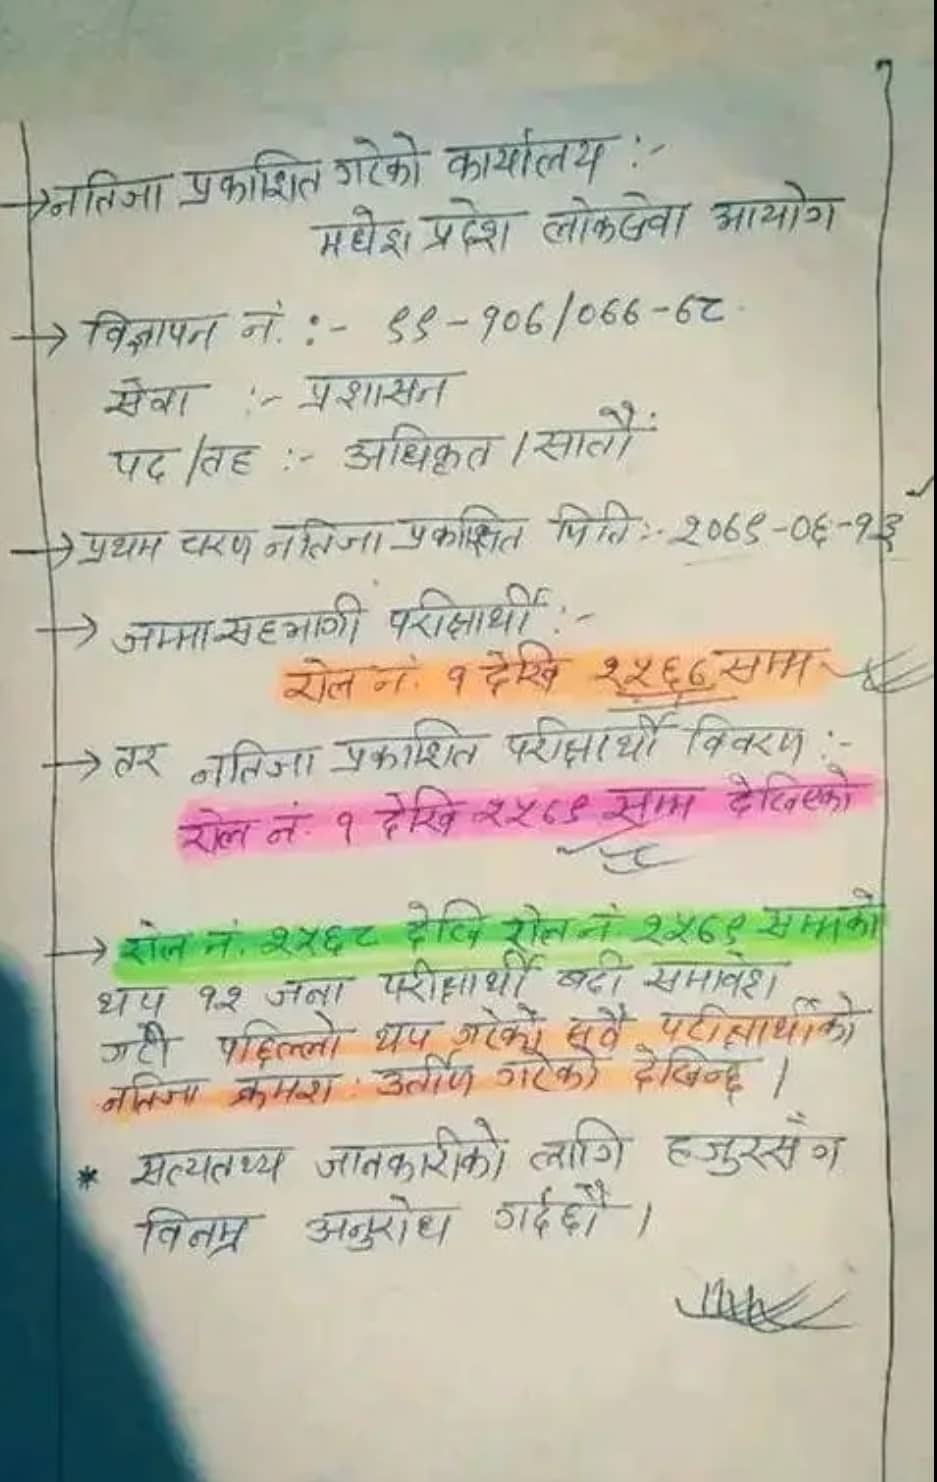 → नतिजा प्रकाशित गरेको कार्यालय :-
मधेश प्रदेश लोकसेवा आयोग
→ विज्ञापन नं. :- ९९-१०७/०७७-७८
सेवा :- प्रशासन
पद/तह :- अधिकृत/सातौं
→ प्रथम चरण नतिजा प्रकाशित मिति:- २०७९-०६-१३
→ जम्मा सहभागी परीक्षार्थी :-
रोल नं. १ देखि २५६७ सम्म
→ तर नतिजा प्रकाशित परीक्षार्थी विवरण :-
रोल नं. १ देखि २५७९ सम्म देखिएको
→ रोल नं. २५६८ देखि रोल नं. २५७९ सम्मको
थप १२ जना परीक्षार्थी बढी समावेश
गरी पहिल्लो थप गरेको सबै परीक्षार्थीको
नतिजा क्रमश: उर्तीण गरेको देखिन्छ ।
* सत्यतथ्य जानकारीको लागि हजुरसँग
विनम्र अनुरोध गर्दछौं ।